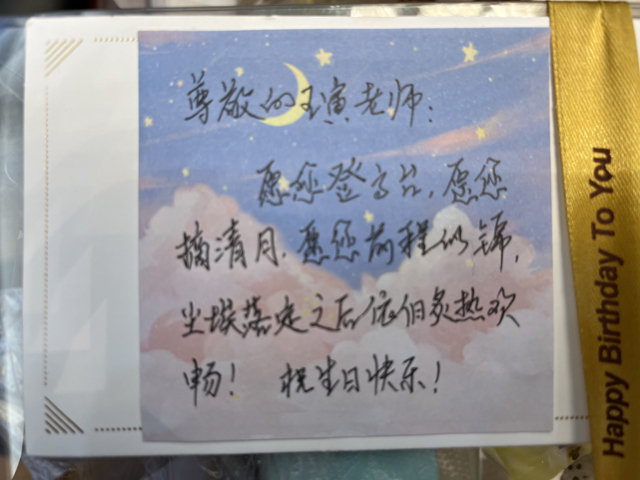 尊敬的王演老师：
愿您登高台，愿您
摘清月，愿您前程似锦，
尘埃落定之后依旧炙热欢
畅！ 祝生日快乐！
Happy Birthday To You